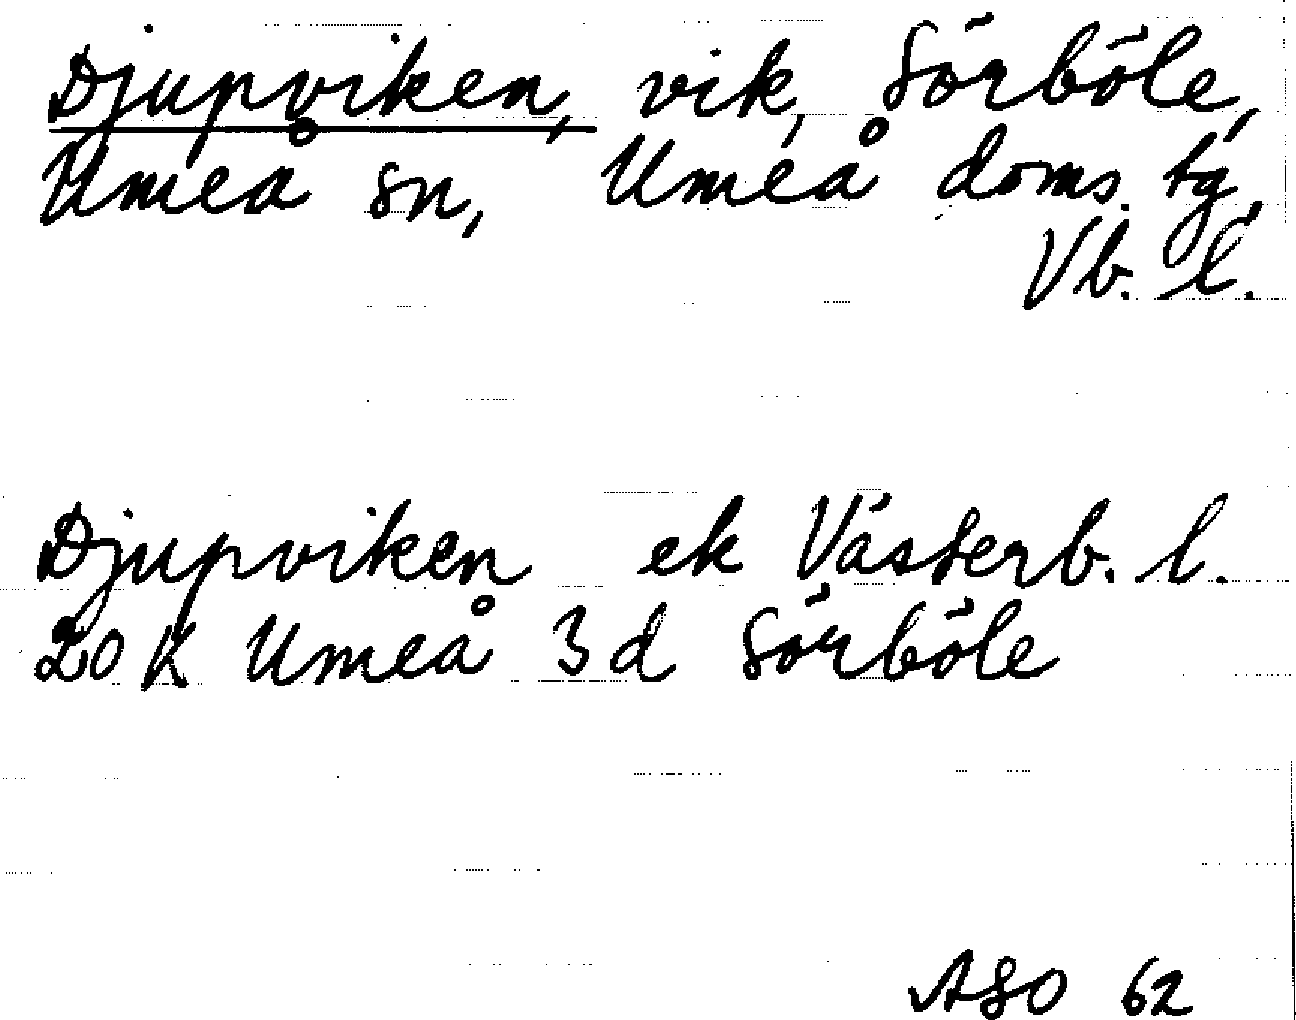 Djupviken, vik, Sörböle,
Umeå sn, Umeå doms. tg,
Vb. l.
Djupviken ek Västerb. l.
20 K Umeå 3 d Sörböle
ASO 62